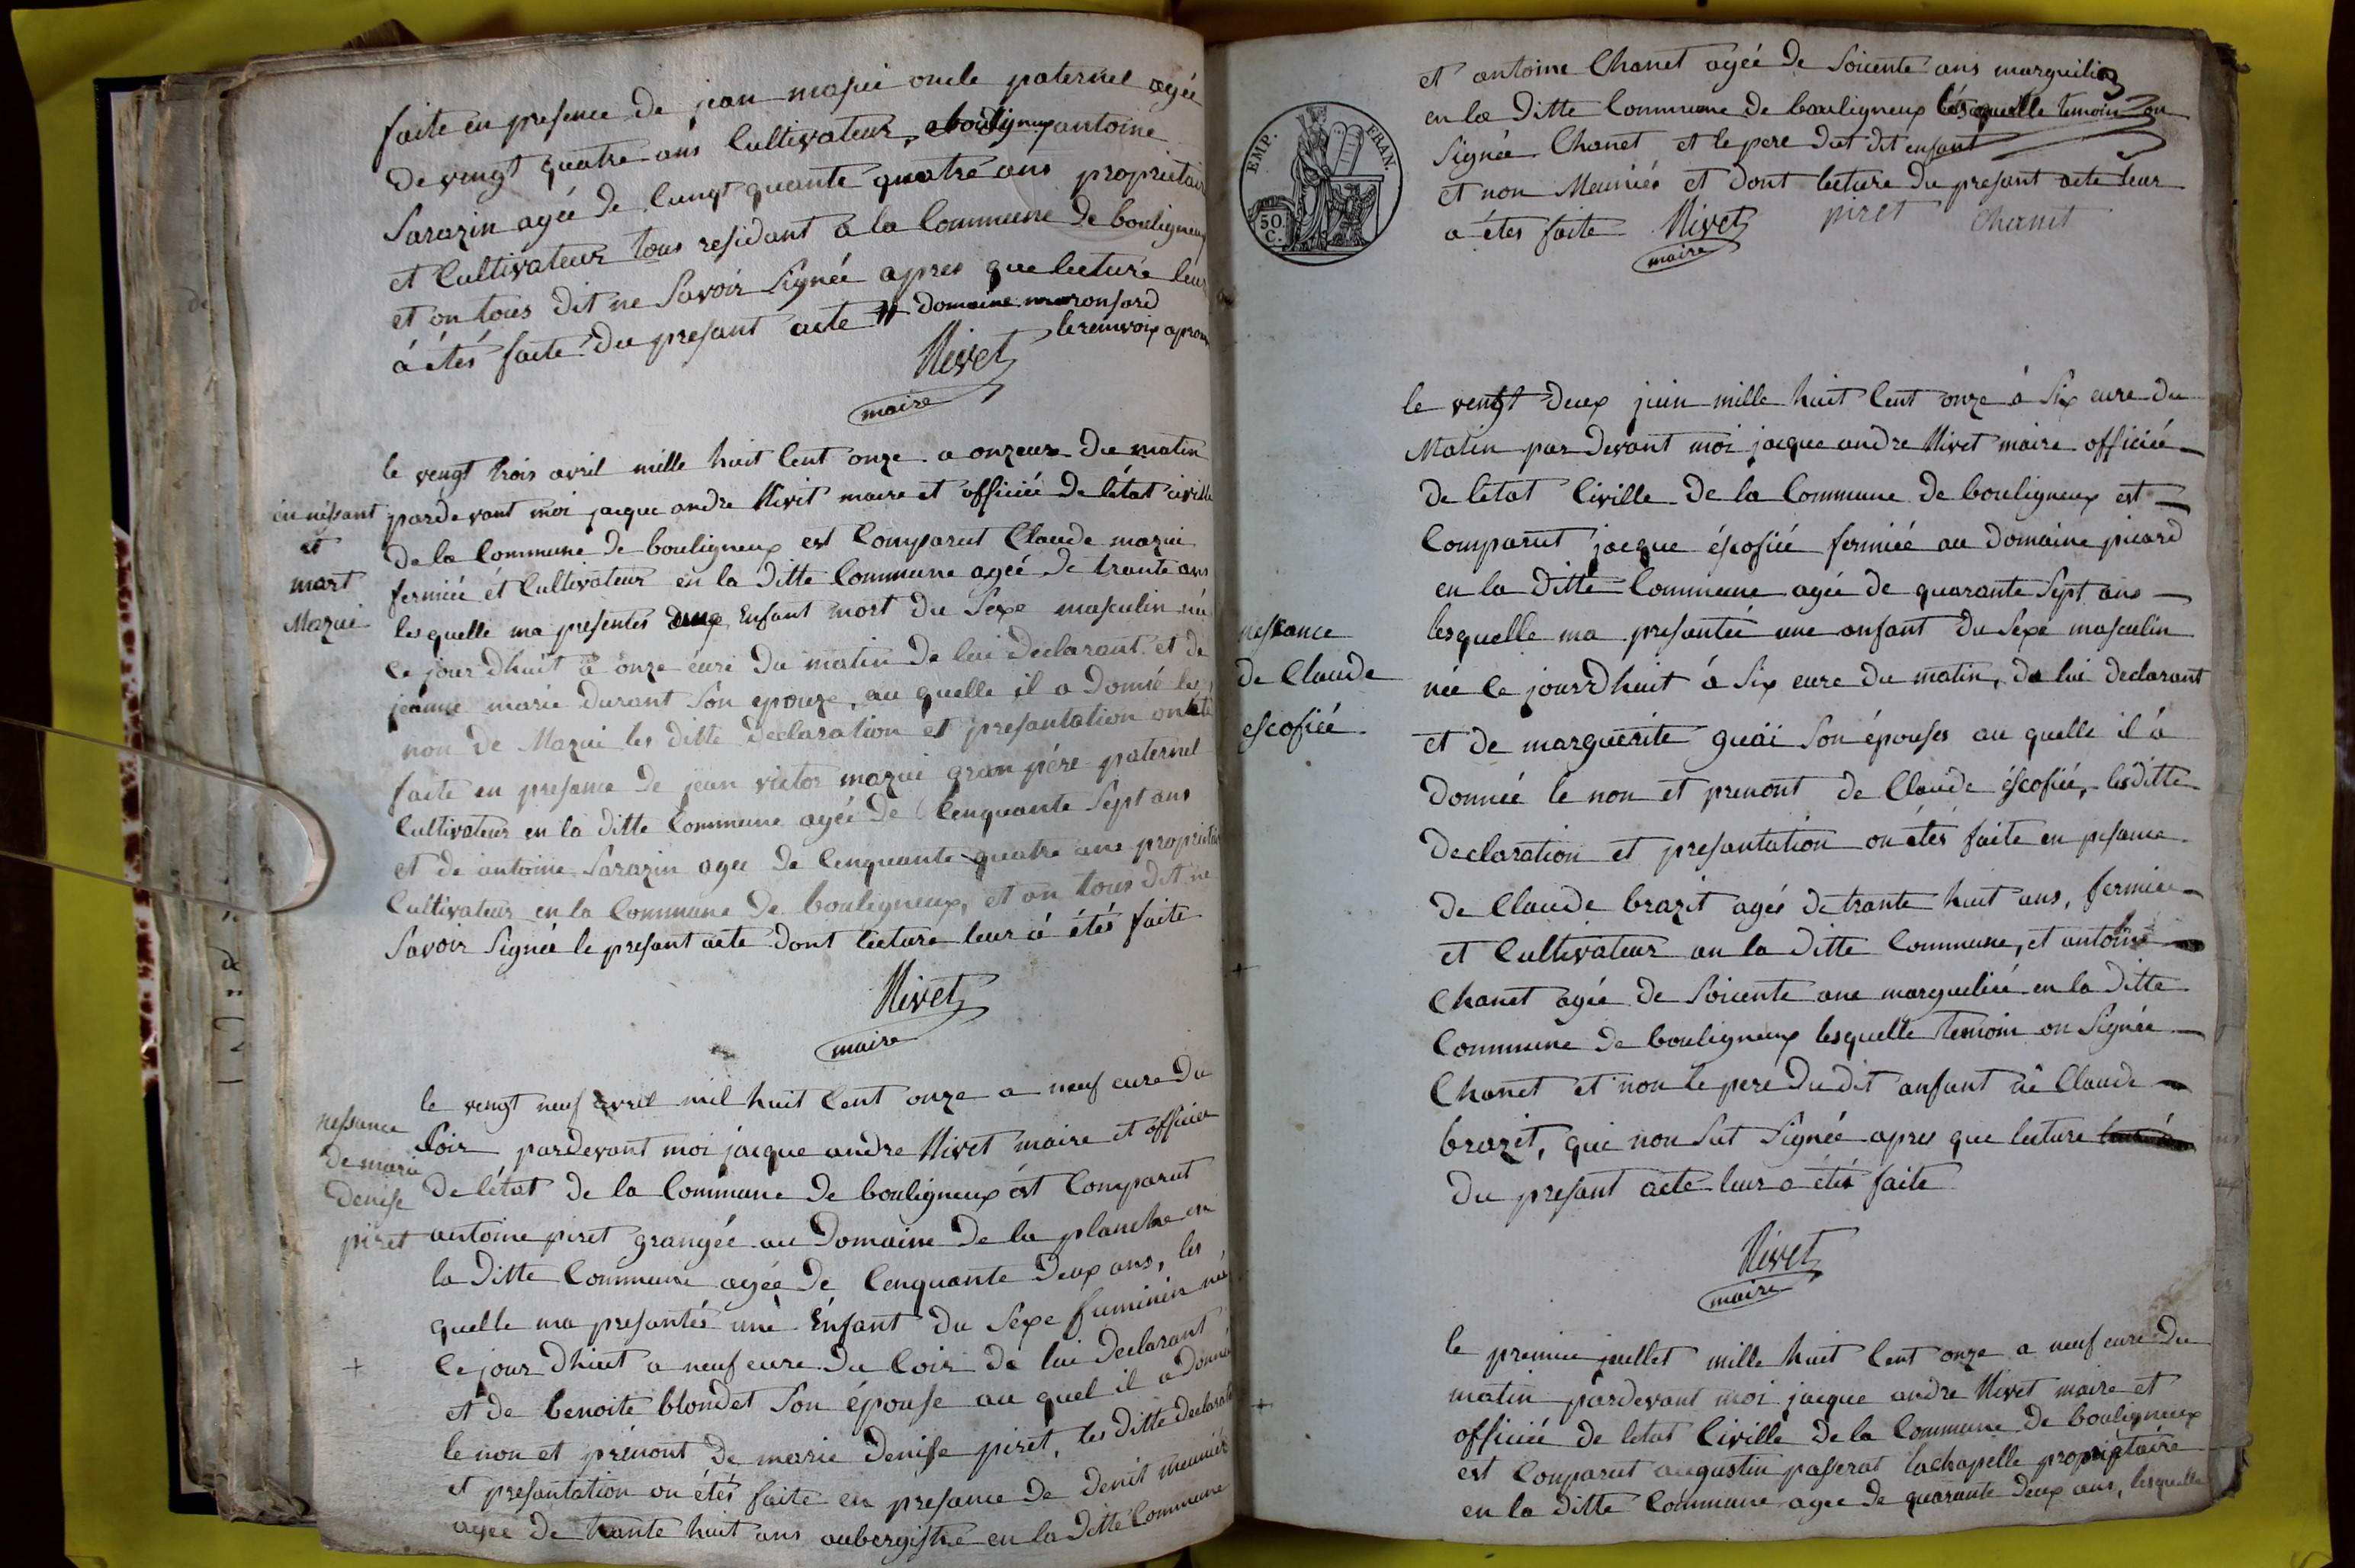 faite en presence de jean mazui oncle paternel agéé
de vengt quatre ans Cultivateur, a bouligneux antoine
Sarazin agéé de Cungt quante quatre ans proprietair
et Cultivateur tous residant a la Commune de bouligneux
et on tous dit ne Savoir Signéé apres que lecture leur
à étés faite du presant acte # domaine maronsard
le renvoix aprou
Nivet
maire
le vengt trois avril mille huit Cent onze a onzeure du matin
en néssant
et
mart
Mazui
pardevant moi jacque andre Nivet maire et officiéé de létat civille
de la Commune de bouligneux est Comparut Claude mazui
fermiéé et Cultivateur en la ditte Commune agéé de trante ans
lesquelle ma presentés Enfant mort du Sexe masculin né
ce jour dhuit à onze eure du matin de lui declarant et de
jeanne marie durant Son epouze, au quelle il a donné le
non de Mazui les ditte declaration et presantation on été
faite en presance de jean victor mazui gran père paternel
Cultivateur en la ditte Commune agéé de Cenquante Sept ans
et de antoine Sarazin agee de Cenquante quatre ans proprietair
Cultivateur en la Commune de bouligneux, et on tous dit ne
Savoir Signéé le presant acte dont lecture leur à étés faite
Nivet
maire
nessance
de marie
denise
piret
le vengt neuf avril mil huit Cent onze a neuf eure du
Soir pardevant moi jacque andre Nivet maire et officier
de létat de la Commune de bouligneux ést Comparut
antoine piret grangéé au Domaine de la planche en
la ditte Commune agéé de Cenquante deux ans, les
quelle ma presantés une Enfant du Sexe fuminin né
ce jour dhuit a neuf eure du Coir de lui declarant
et de benoite blondet Son épouse au quel il a donné
le non et prénont de marie denise piret, les ditte declarati
et presantation on étés faite en presance de denit meuniér
agee de trante huit ans aubergiste en la ditte Commune
et antoine Chanet agéé de Soicente ans marguilié
en la ditte Commune de bouligneux lesquelle temoin on
Signéé Chanet et le pere dut dit enfant
et non Meuniér et dont lecture du presant acte leur
a étes faite Nivet piret Chanet
maire
EMP. FRAN.
50 C.
le vengt deux juin mille huit Cent onze à Six eure du
Matin par devant moi jacque andre Nivet maire officiéé
de létat Civille de la Commune de bouligneux est
Comparut jacque éscofiéé fermiéé au domaine picard
en la ditte Commune agéé de quarante Sept ans
nessance
de Claude
escofiéé
lesquelle ma presantéé une anfant du Sexe masculin
néé le jourdhuit à Six eure du matin, de lui declarant
et de marguerite guäi Son épouses au quelle il à
donnéé le non et prenont de Claude éscofiéé, les ditte
declaration et presantation on étés faite en presance
de Claude brazit agés de trante huit ans, fermiéé
et Cultivateur an la ditte Commune, et antoine
Chanet agéé de Soicente ans margueliéé en la ditte
Commune de bouligneux lesquelle temoin on Signéé
Chanet et non le peré du dit anfant ni Claude
brazit, qui non Sut Signéé apres que lecture
du presant acte leur a étés faite
Nivet
maire
le premiee juellet mille huit Cent onze a neuf eure du
matin pardevant moi jacque andre Nivet maire et
officiéé de létat Civille de la Commune de bouligneux
est Conparut augustin paserat lachapelle proprietaire
en la ditte Commune agee de quarante deux ans, lesquelle